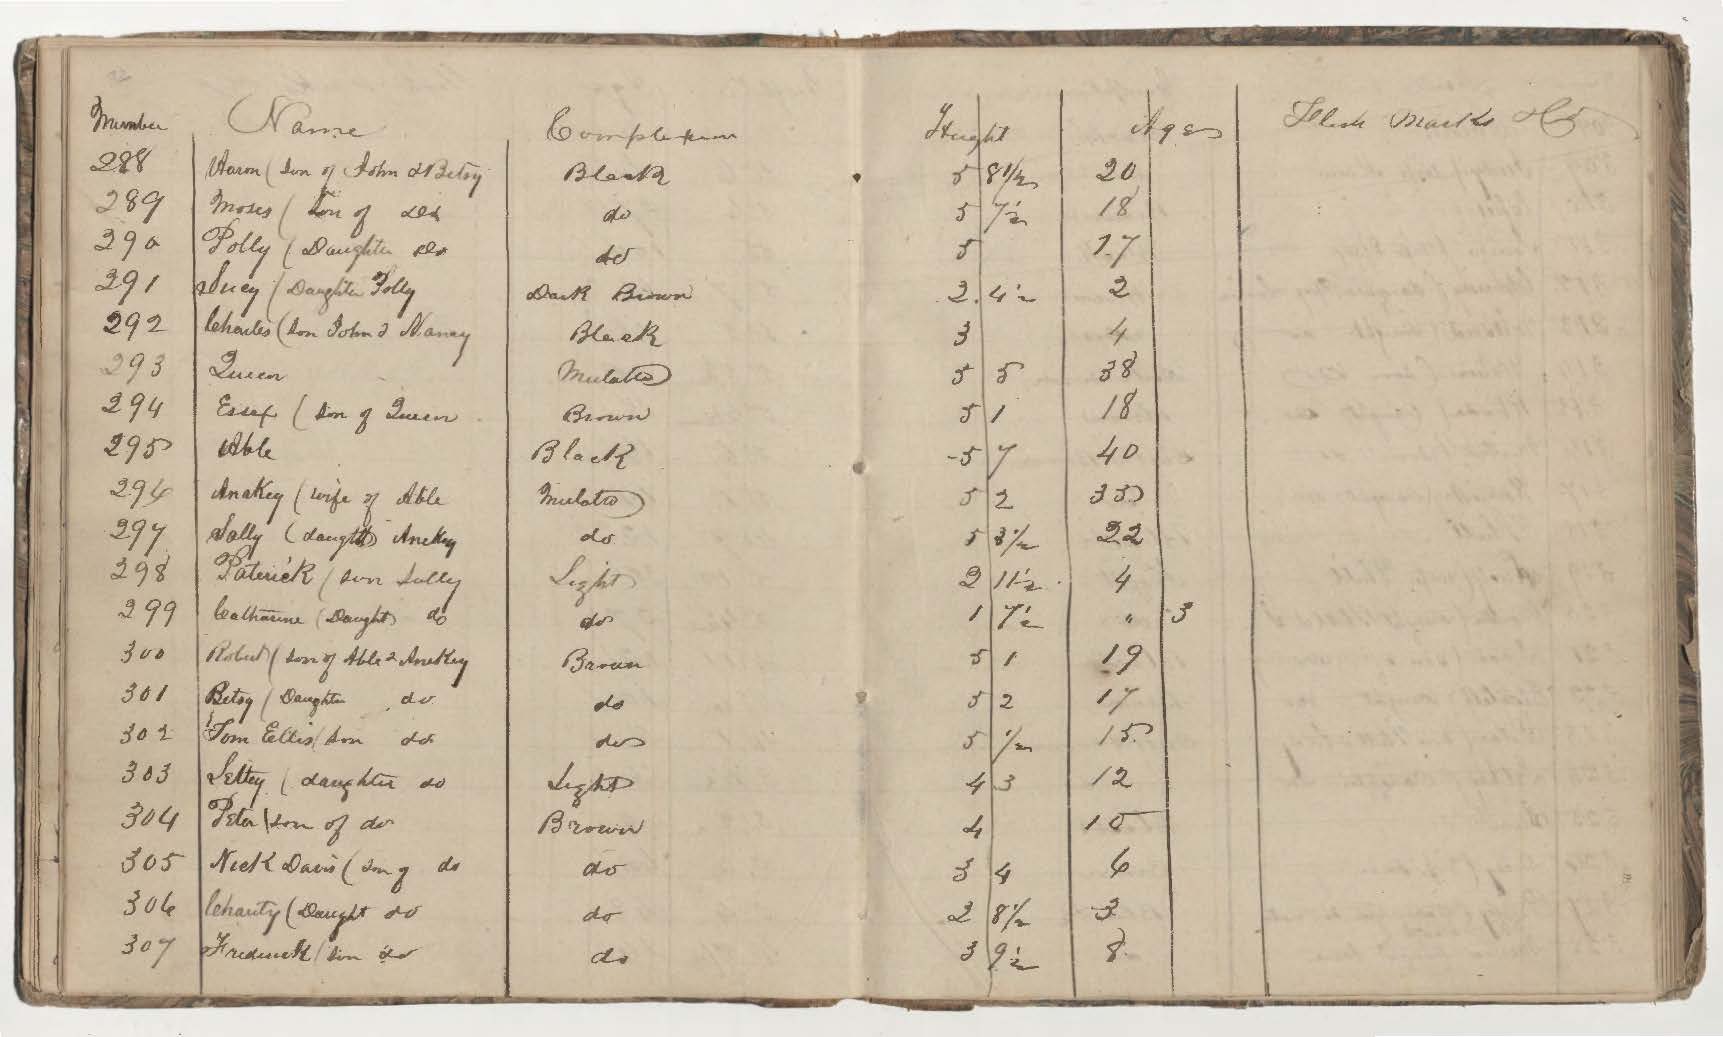 Number Name Complexion Height Ages Flesh Marks &c
288 Aaron (Son of John & Betsy Black 5 8 1/2 20
289 Moses (Son of do do 5 7 1/2 18
290 Polly (Daughter do do 5 17
291 Lucy (Daughter Polly Dark Brown 2 4 1/2 2
292 Charles (Son John & Nancy Black 3 4
293 Queen Mulatto 5 5 38
294 Essex (Son of Queen Brown 5 1 18
295 Able Black 5 7 40
296 Anakey (wife of Able Mulatto 5 2 35
297 Sally (daught Anekey do 5 3 1/2 22
298 Paterick (son Sally Light 2 11 1/2 4
299 Catharine (Daught do do 1 7 1/2 " 3
300 Robert (son of Able & Anekey Brown 5 1 19
301 Betsy (Daughter do do 5 2 17
302 Tom Ellis (son do do 5 1/2 15
303 Lettey (daughter do Light 4 3 12
304 Peter (son of do Brown 4 10
305 Nick Davis (son of do do 3 4 6
306 Charity (Daught do do 2 8 1/2 3
307 Frederick (son do do 3 9 1/2 8